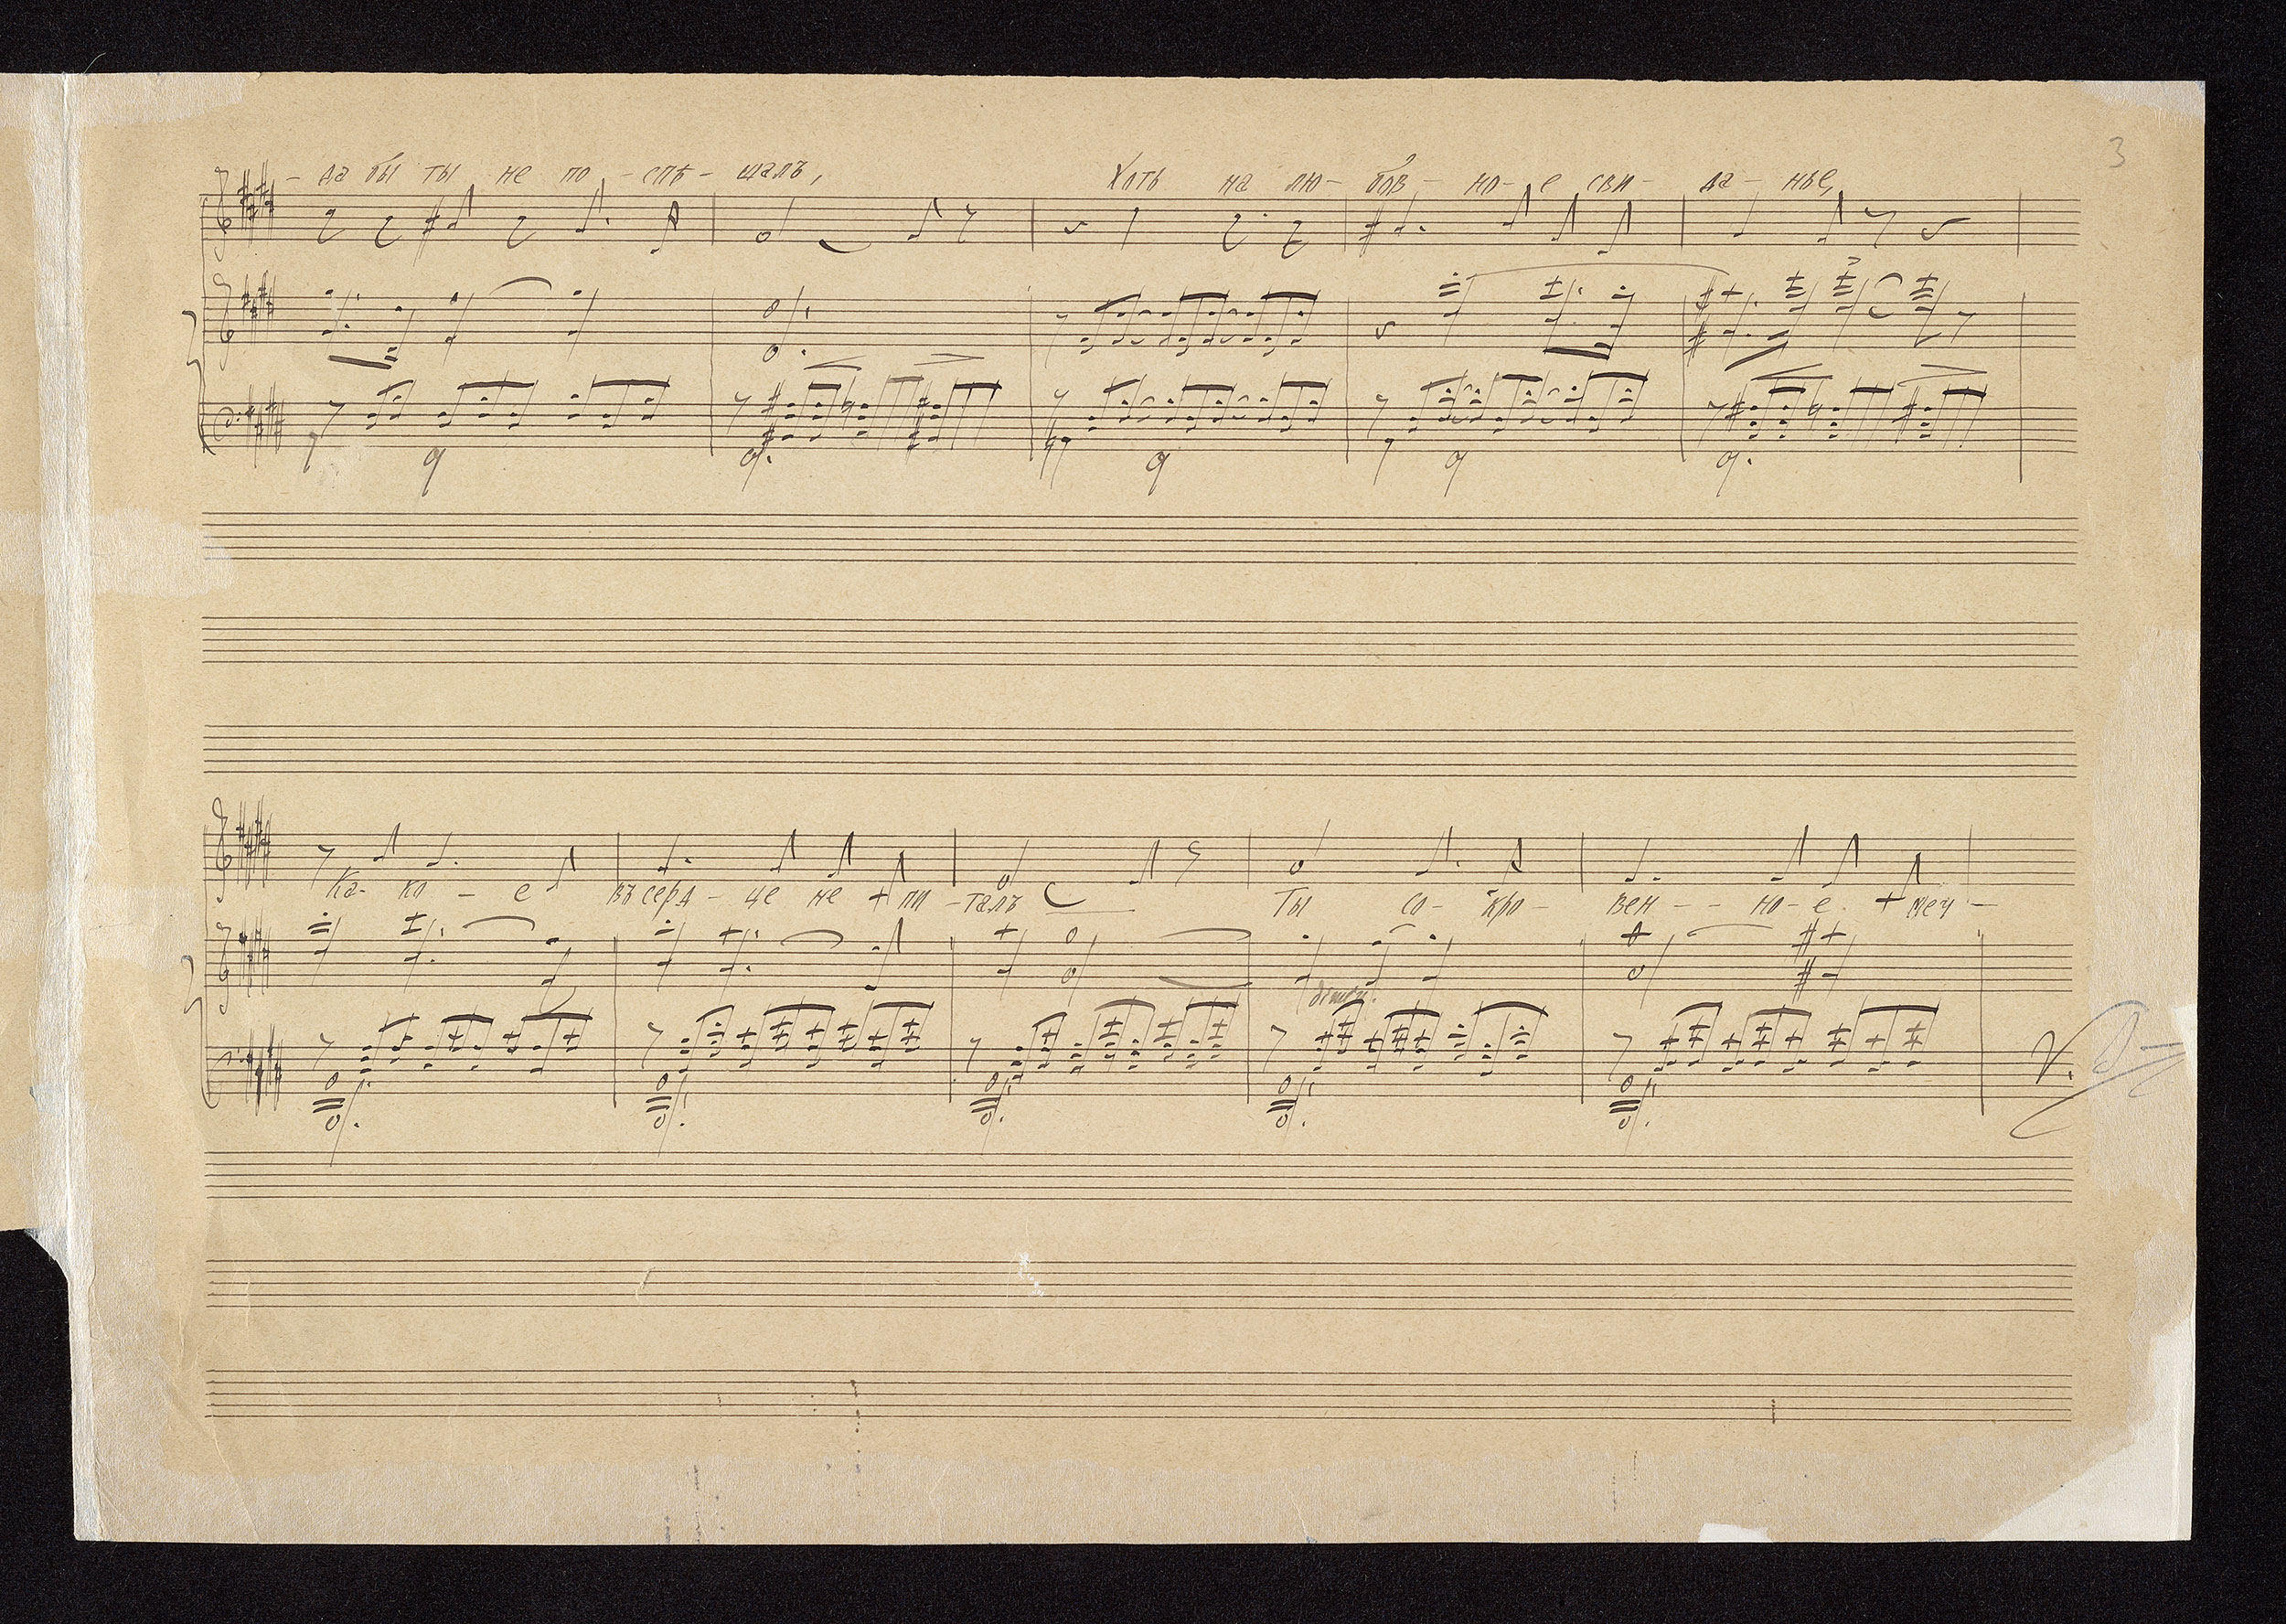 3
- да бы ты не по - спѣ - шалъ, Хоть на лю - бов - но - е сви - да - нье,
Ка - ко - е въ серд - це не + пи - талъ Ты со - кро - вен - - но - е + меч -
dimin.
V.